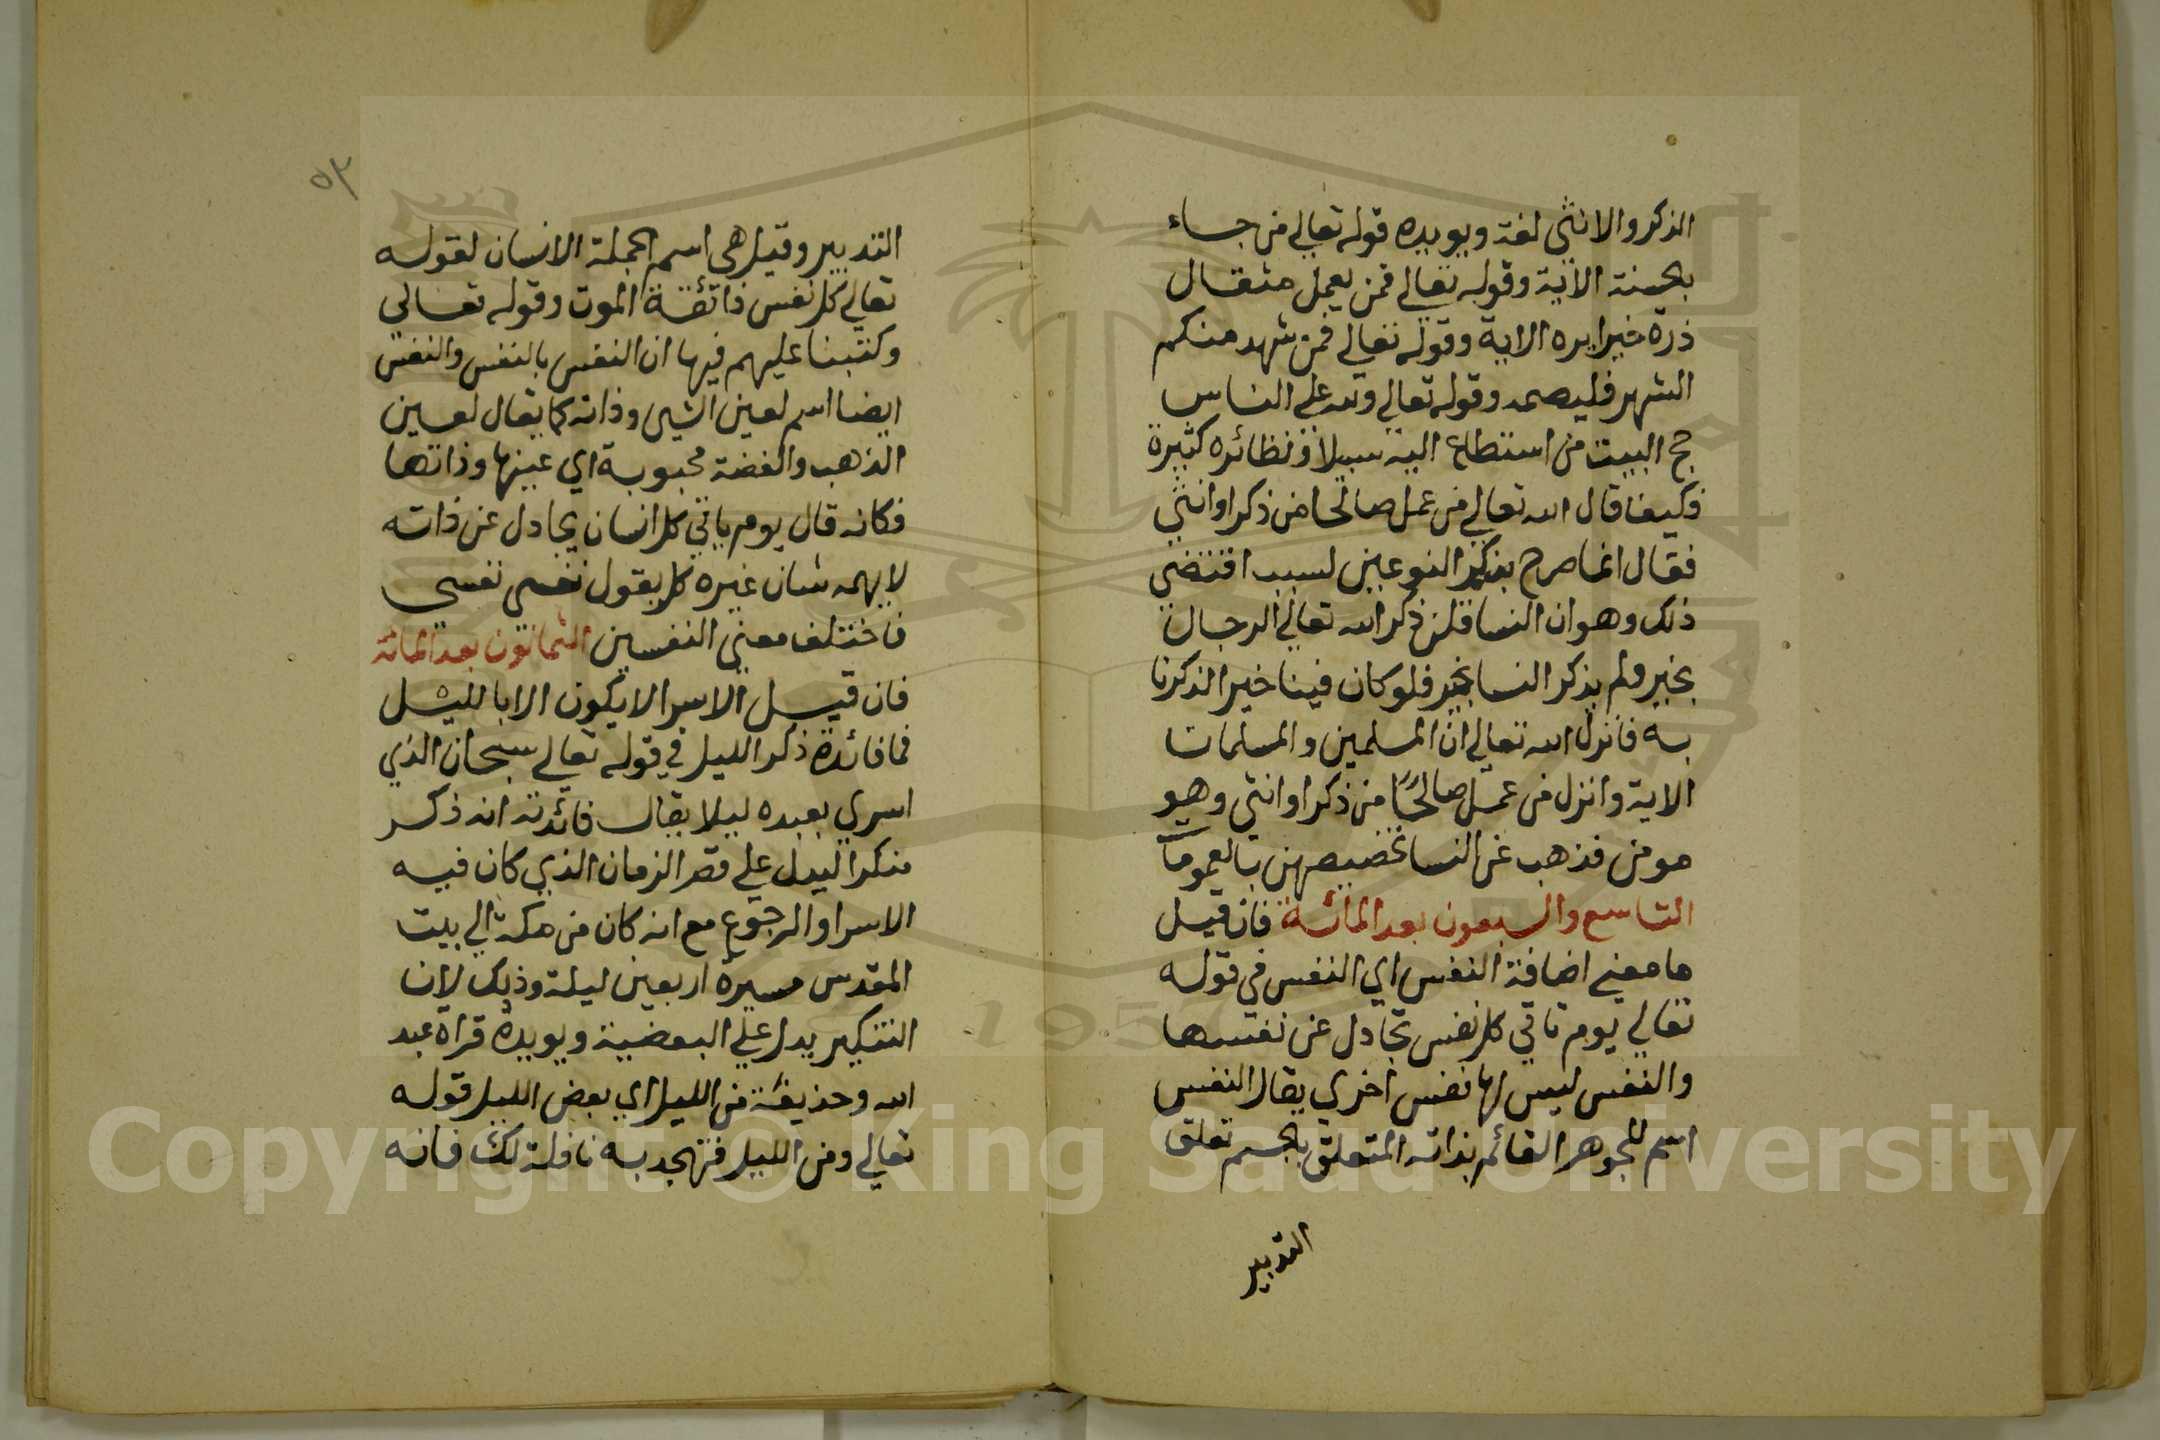 الذكر والانثي لغة ويويده قوله تعالي من جاء
بالحسنة الاية وقوله تعالي فمن يعمل مثقال
ذرة خيرا يره الاية وقوله تعالي فمن شهد منكم
الشهر فليصمه وقوله تعالي ولله علي الناس
حج البيت من استطاع اليه سبيلا ونظائره كثيرة
فكيف قال الله تعالي من عمل صالحا من ذكر او انثي
فقال انما صرح بذكر النوعين لسبب اقتضي
ذلك وهو ان النسا قلن ذكر الله تعالي الرجال
بخير ولم يذكر النسا بخير فلو كان فينا خير الذكرنا
به فانزل الله تعالي ان المسلمين والمسلمات
الاية وانزل من عمل صالحًا من ذكر او انثي وهو
مومن فذهب عن النسا تخصيصهن بالعمومات
التاسع والسبعون بعد المائة فان قيل
ما معني اضافة النفس اي النفس في قوله
تعالي يوم تاتي كل نفس تجادل عن نفسها
والنفس ليس لها نفس اخري يقال النفس
اسم للجوهر القائم بذاته المتعلق بالجسم تعلق
التدبير
٥٣
التدبير وقيل هي اسم لجملة الانسان لقوله
تعالي كل نفس ذائقة الموت وقوله تعالي
وكتبنا عليهم فيها ان النفس بالنفس والنفس
ايضا اسم لعين الشي وذاته كما يقال لعين
الذهب والفضة محبوبة اي عينها وذاتها
فكانه قال يوم ياتي كل انسان يجادل عن ذاته
لا يهمه شان غيره كل يقول نفسي نفسي
فاختلف معني النفسين الثمانون بعد المائة
فان قيل الاسرا لا يكون الا بالليل
فما فائدة ذكر الليل في قوله تعالي سبحان الذي
اسري بعبده ليلا يقال فائدته انه ذكر
منكرا ليدل علي قصر الزمان الذي كان فيه
الاسرا والرجوع مع انه كان من مكة الي بيت
المقدس مسيرة اربعين ليلة وذلك لان
التنكير يدل علي البعضية ويويده قراة عبد
الله وحذيفة من الليل اي بعض الليل قوله
تعالي ومن الليل فتهجد به نافلة لك فانه
1957
Copyright © King Saud University